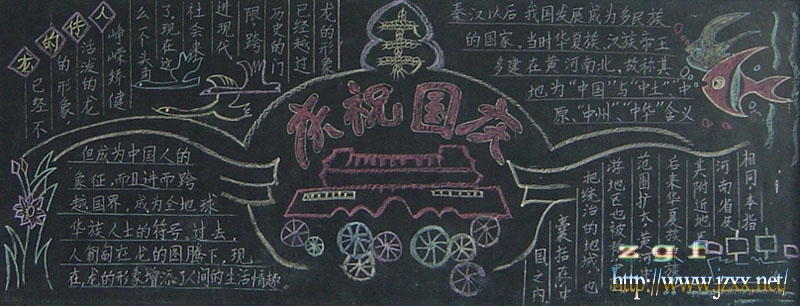 龙的传人
龙的形象
已经越过
历史的门
限,跨
进现代
社会来
了,现在这
么个头角
峥嵘矫健
活泼的龙
的形象
已经不
但成为中国人的
象征,而且进而跨
越国界,成为全地球
华族人士的符号。过去,
人们匍在龙的图腾下,现
在,龙的形象增添了人间的生活情趣。
庆祝国庆
秦汉以后,我国发展成为多民族
的国家,当时华夏族、汉族帝王
多建在黄河南北,故称其
地为“中国”与“中土”、“中
原”、“中州”、“中华”含义
相同,本指
河南省及
其附近地
后来华夏族
范围扩大,黄河
游地区也被
把统治的地域,也
囊括在中
国之内
zgf
http://www.jzxx.net/